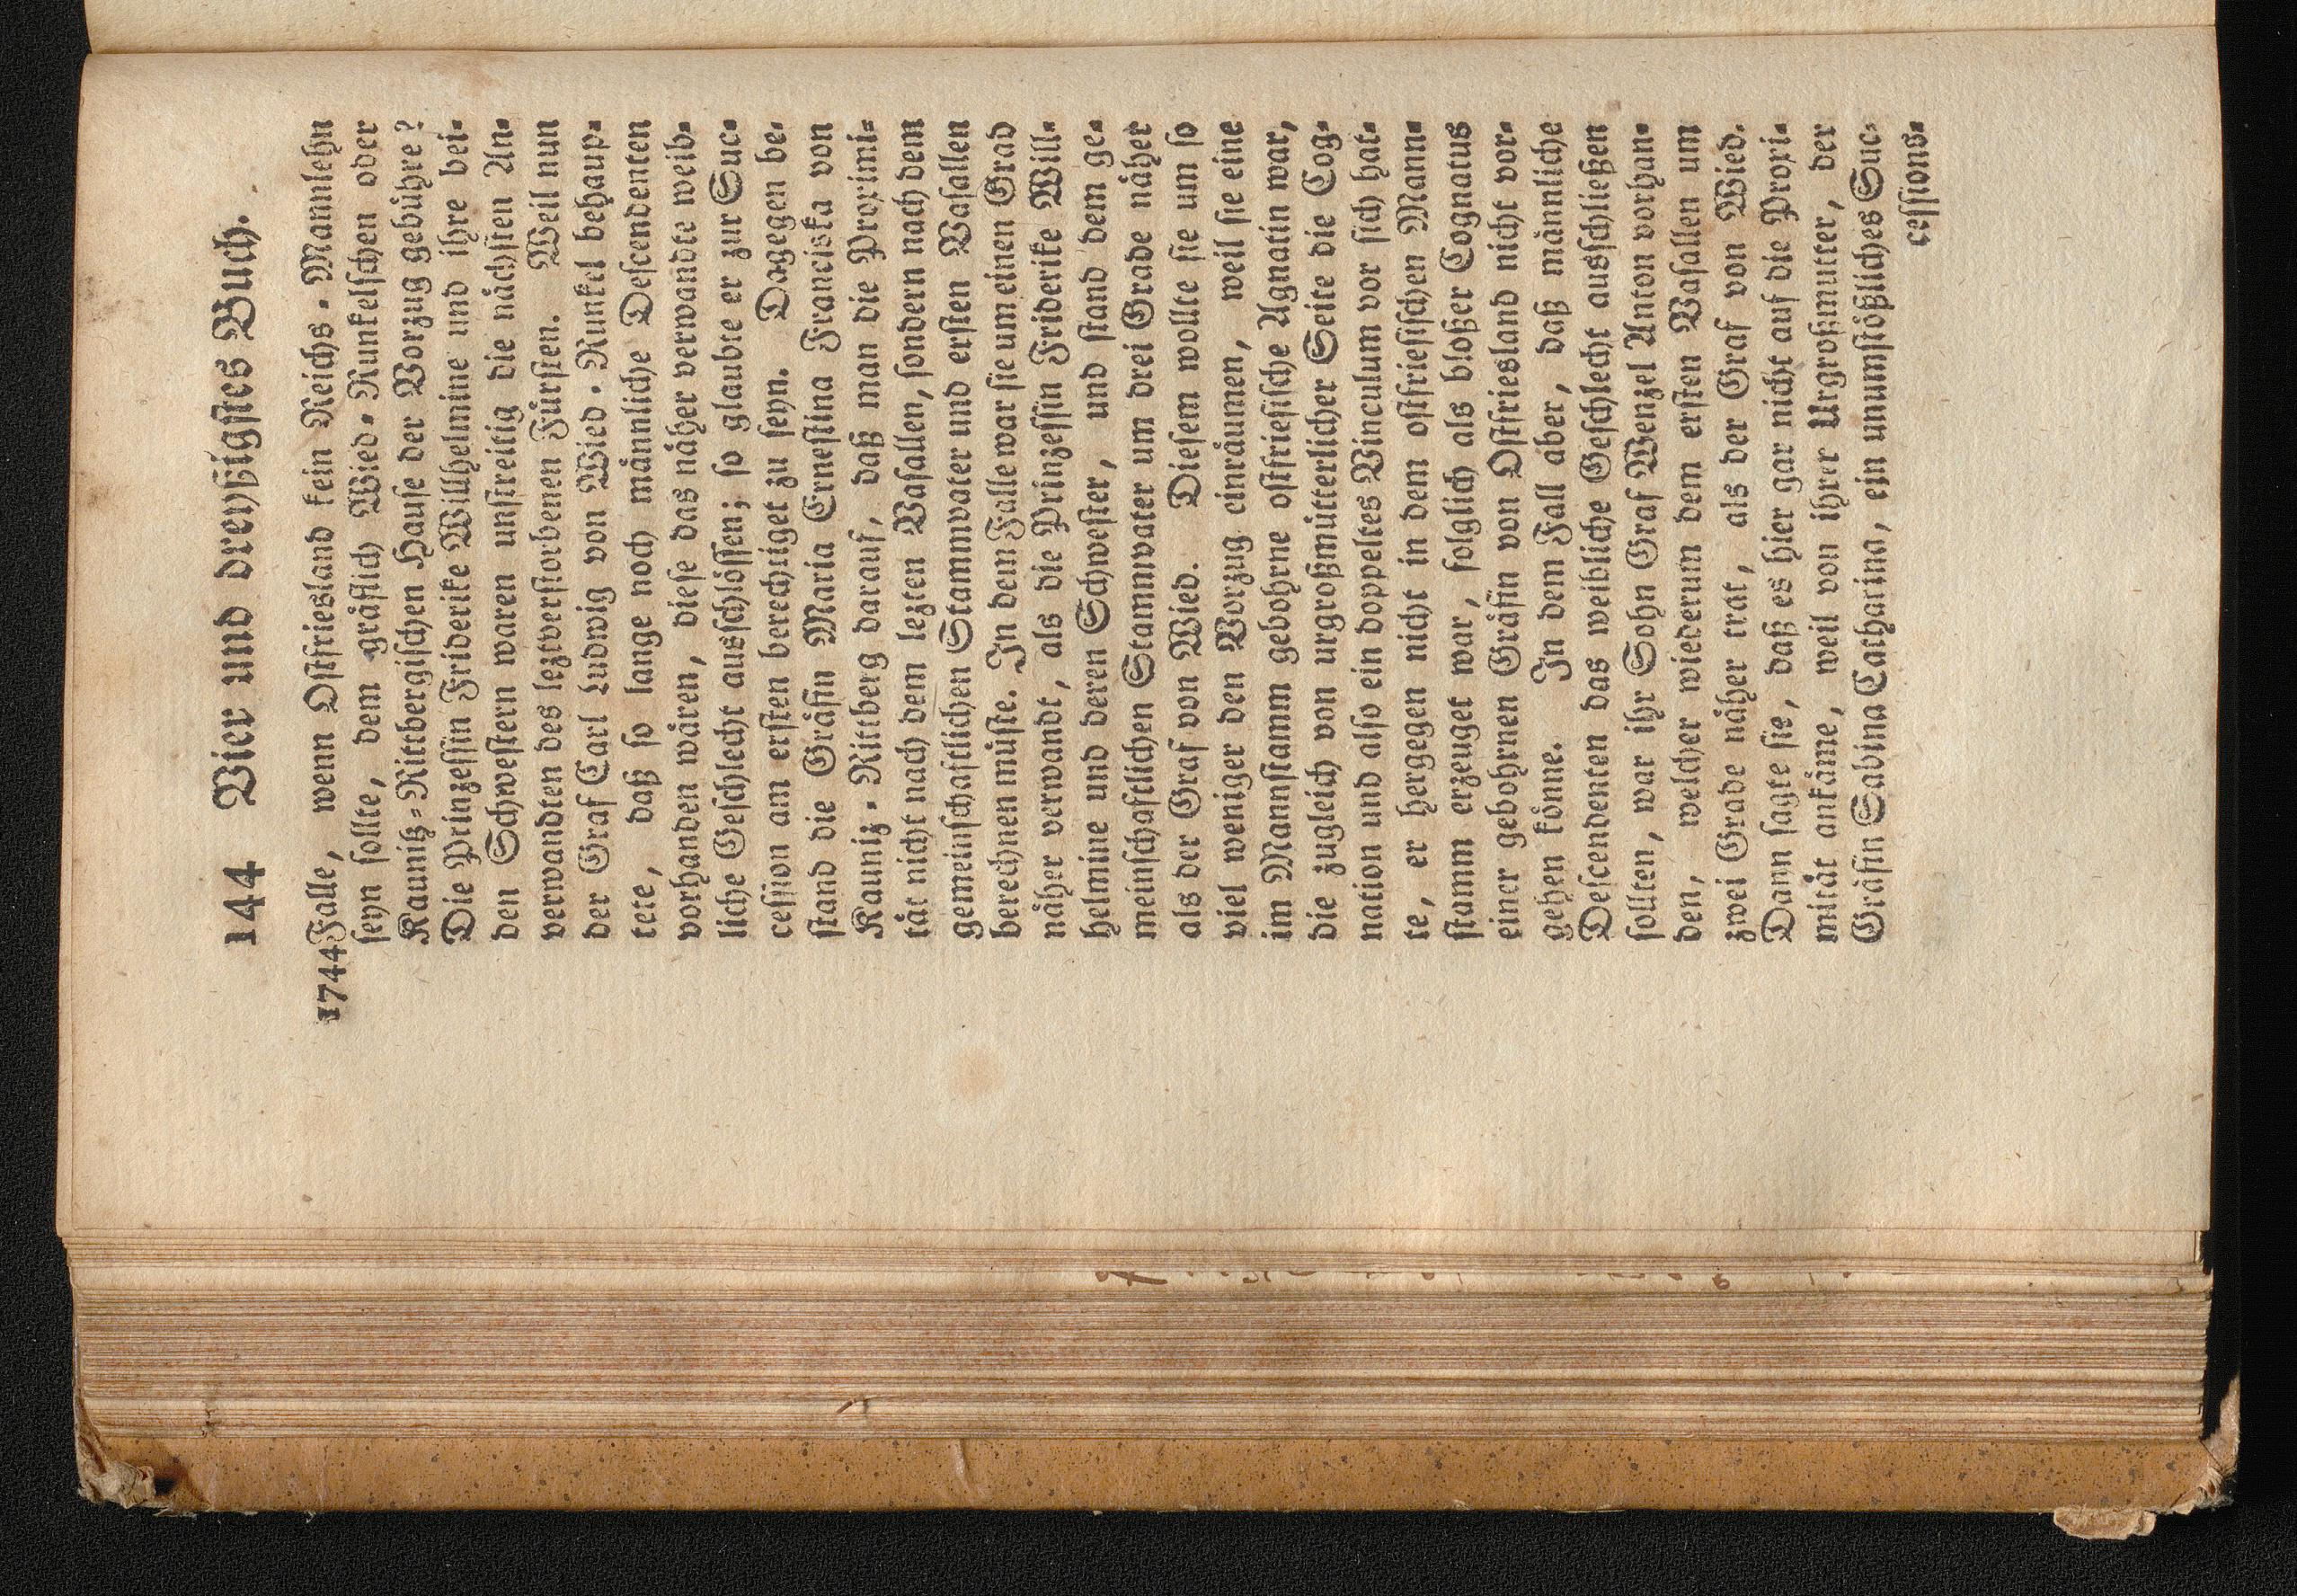 144 Vier und dreyßigstes Buch.
1744 Falle, wenn Ostfriesland kein Reichs-Mannlehn
seyn sollte, dem gräflich Wied-Runkelschen oder
Kaunitz-Rittbergischen Hause der Vorzug gebühre?
Die Prinzessin Friderike Willhelmine und ihre bei-
den Schwestern waren unstreitig die nächsten An-
verwandten des leztverstorbenen Fürsten. Weil nun
der Graf Carl Ludwig von Wied-Runkel behaup-
tete, daß so lange noch männliche Descendenten
vorhanden wären, diese das näher verwandte weib-
liche Geschlecht ausschlössen; so glaubte er zur Suc-
cession am ersten berechtiget zu seyn. Dagegen be-
stand die Gräfin Maria Ernestina Franciska von
Kauniz-Rittberg darauf, daß man die Proximi-
tät nicht nach dem lezten Vasallen, sondern nach dem
gemeinschaftlichen Stammvater und ersten Vasallen
berechnen müste. In dem Falle war sie um einen Grad
näher verwandt, als die Prinzessin Friderike Will-
helmine und deren Schwester, und stand dem ge-
meinschaftlichen Stammvater um drei Grade näher
als der Graf von Wied. Diesem wollte sie um so
viel weniger den Vorzug einräumen, weil sie eine
im Mannstamm gebohrne ostfriesische Agnatin war,
die zugleich von urgroßmütterlicher Seite die Cog-
nation und also ein doppeltes Vinculum vor sich hat-
te, er hergegen nicht in dem ostfriesischen Mann-
stamm erzeuget war, folglich als bloßer Cognatus
einer gebohrnen Gräfin von Ostfriesland nicht vor-
gehen könne. In dem Fall aber, daß männliche
Descendenten das weibliche Geschlecht ausschließen
sollten, war ihr Sohn Graf Wenzel Anton vorhan-
den, welcher wiederum dem ersten Vasallen um
zwei Grade näher trat, als der Graf von Wied.
Dann sagte sie, daß es hier gar nicht auf die Proxi-
mität ankäme, weil von ihrer Urgroßmutter, der
Gräfin Sabina Catharina, ein unumstößliches Suc-
cessions-